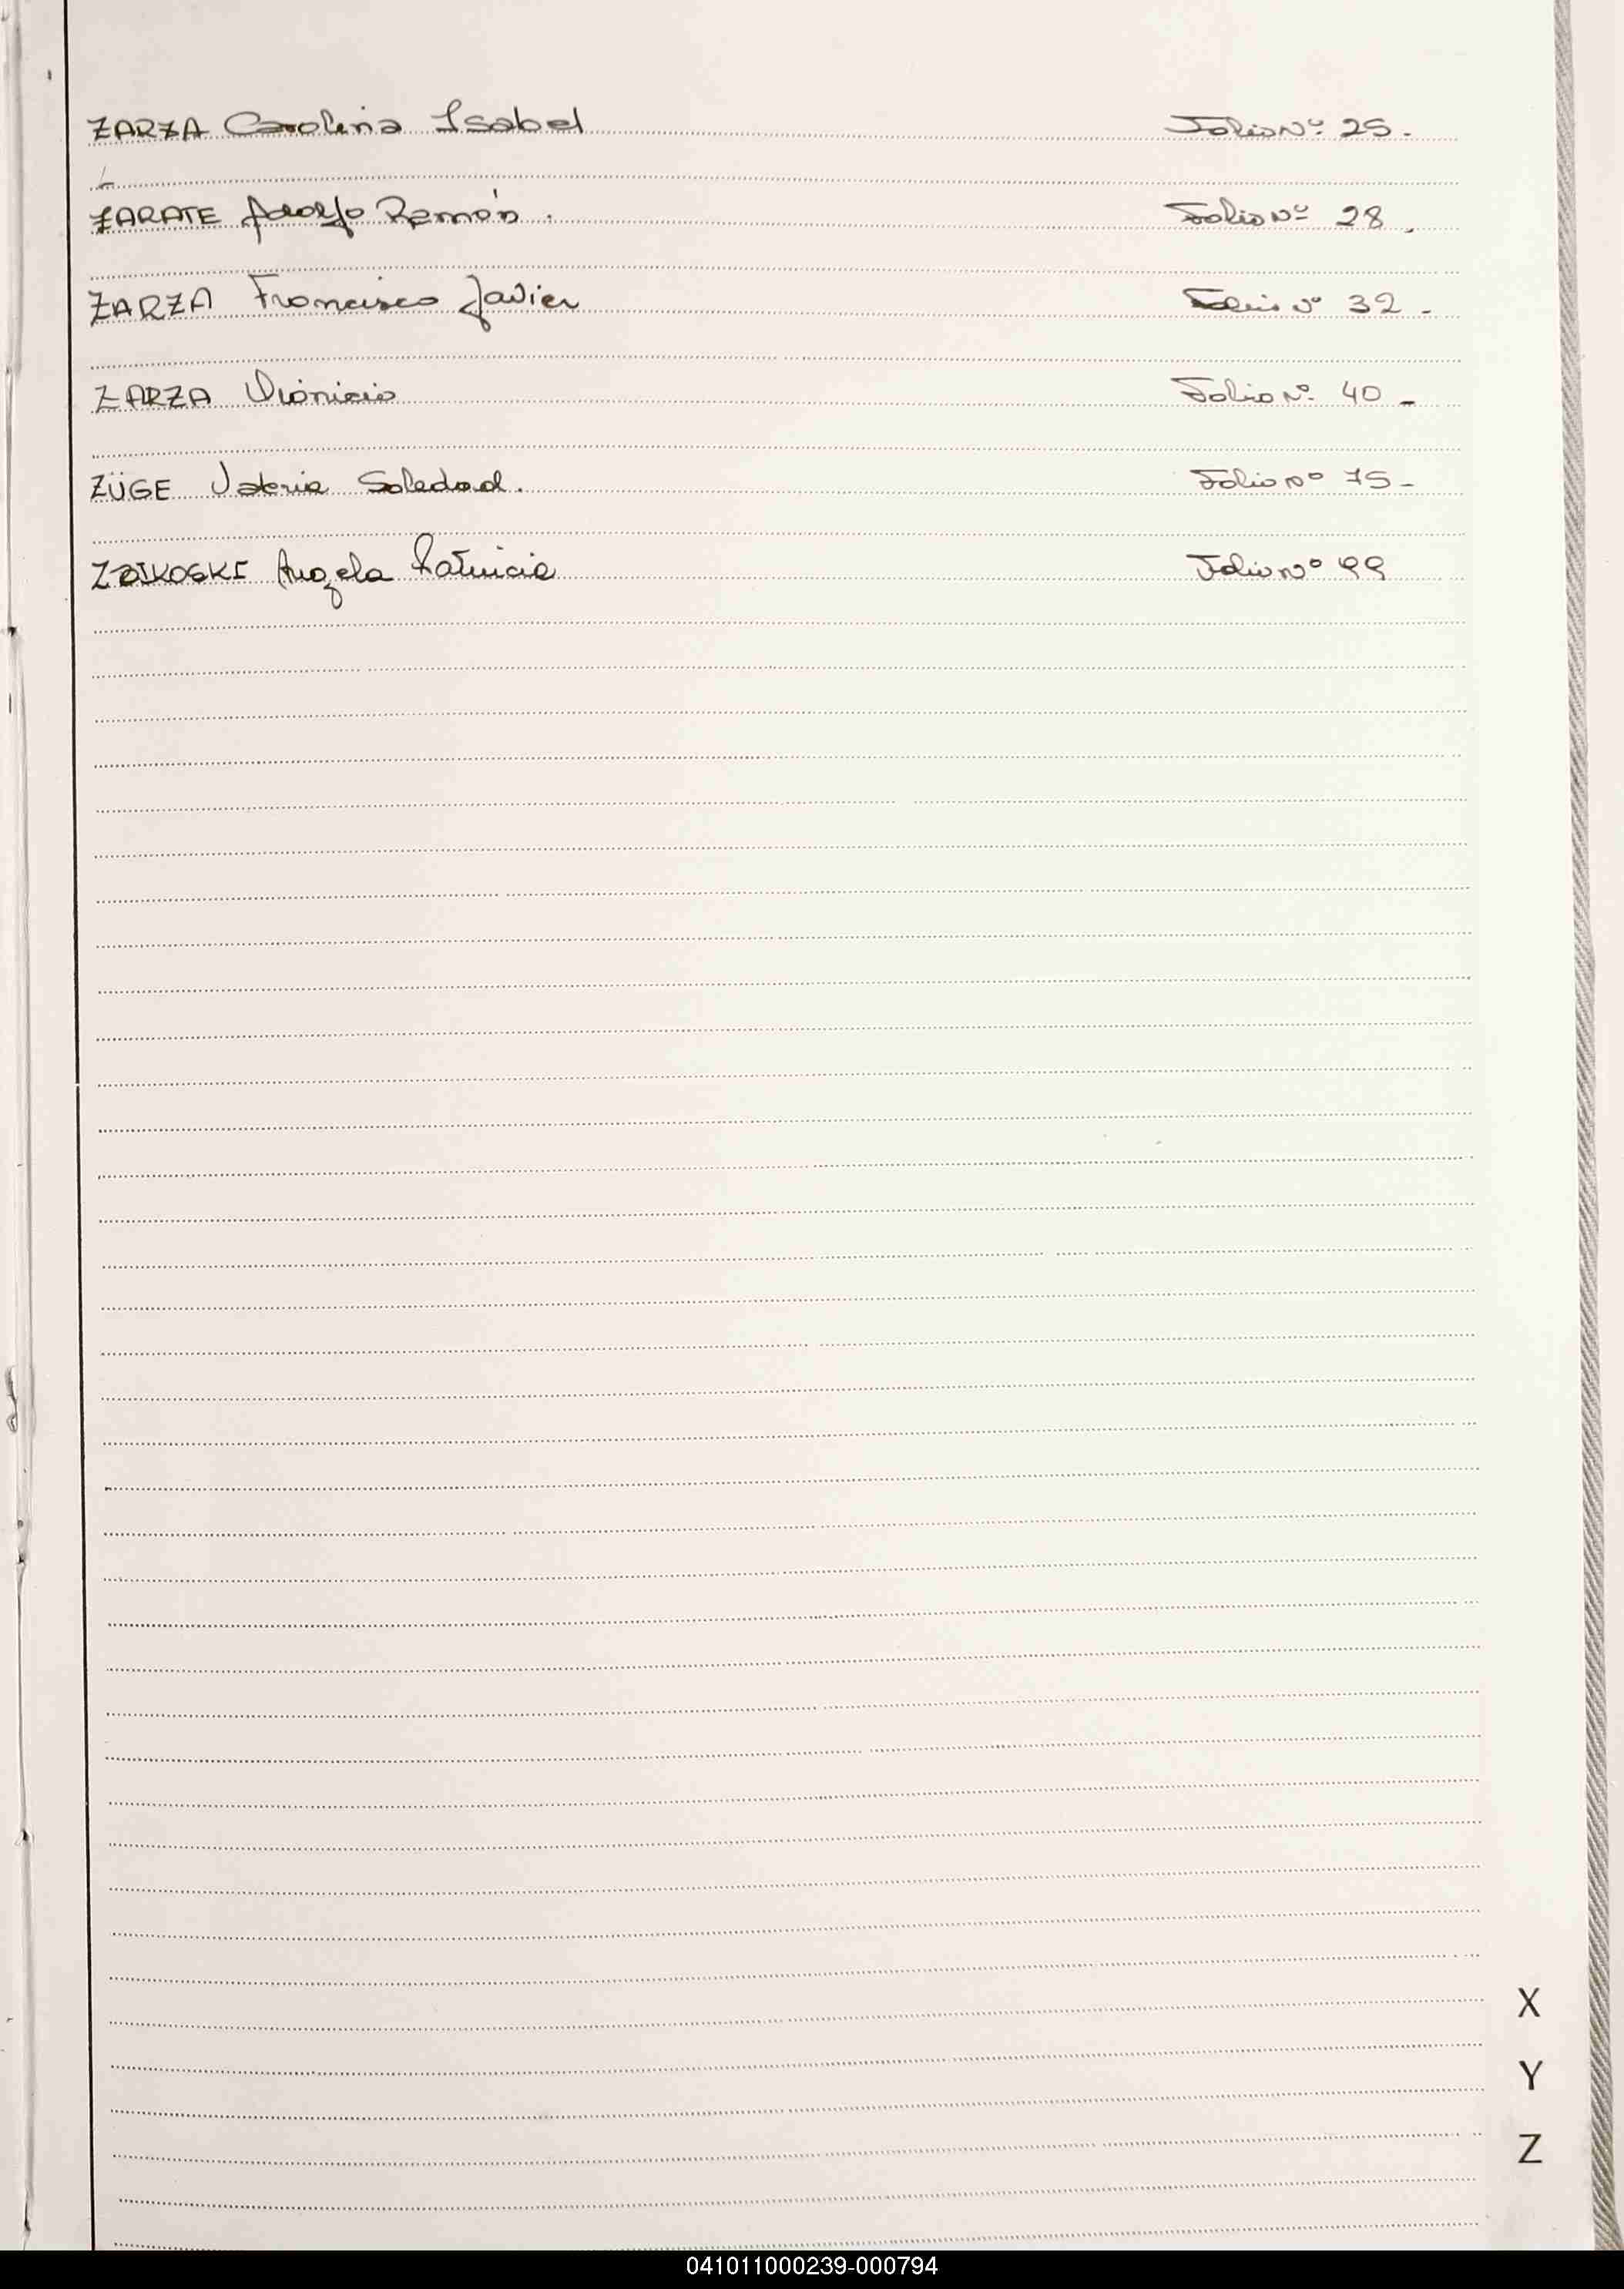 ZARZA Carolina Isabel Folio Nº 25.
ZARATE Adolfo Ramón. Folio Nº 28.
ZARZA Francisco Javier Folio Nº 32.
ZARZA Dionicio Folio Nº 40-
ZÜGE Valeria Soledad. Folio Nº 75-
ZBIKOSKI Angela Patricia Folio Nº 99
X
Y
Z
041011000239-000794